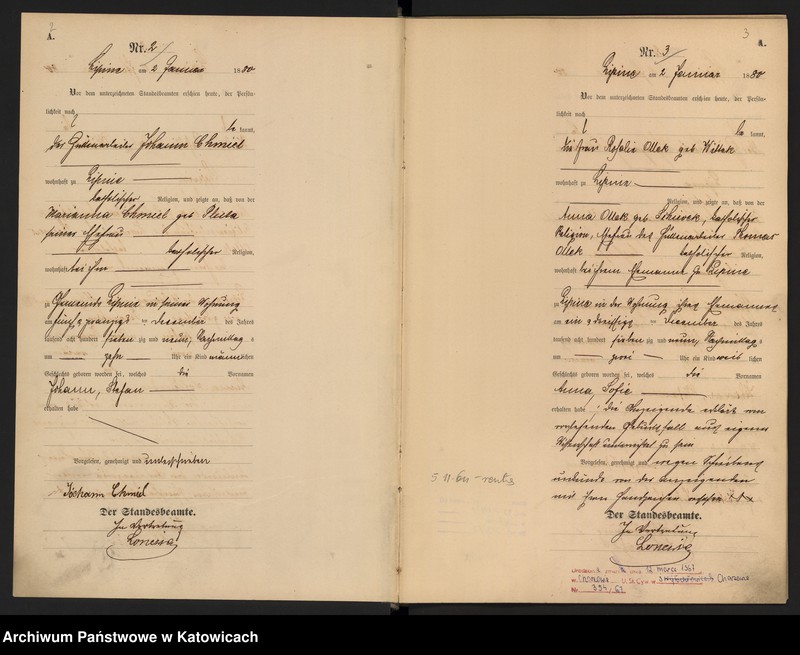 2
A.
Nr. 2
Lipine am 2 Januar 1880
Vor dem unterzeichneten Standesbeamten erschien heute, der Persön-
lichkeit nach
be kannt,
der Hüttenarbeiter Johann Chmiel
wohnhaft zu Lipine
katholischer Religion, und zeigte an, daß von der
Marianna Chmiel geb
seiner Ehefrau
katholischer Religion,
wohnhaft bei ihm
zu Gemeinde Lipine in seiner Wohnung
am fünf & zwanzigst en December des Jahres
tausend acht hundert sieben zig und neun, Nachmittag s
um zehn Uhr ein Kind männ lichen
Geschlechts geboren worden sei, welches die Vornamen
Johann, Stefan
erhalten habe
Vorgelesen, genehmigt und unterschrieben
Johann Chmiel
Der Standesbeamte.
In Vertretung
3
A.
Nr. 3
Lipine am 2 Januar 1880
Vor dem unterzeichneten Standesbeamten erschien heute, der Persön-
lichkeit nach
be kannt,
die Frau Rosalie Ollek geb Wittek
wohnhaft zu Lipine
Religion, und zeigte an, daß von der
Anna Ollek geb. katholischer
Religion, Ehefrau des Hüttenarbeiter Thomas
Ollek katholischer Religion,
wohnhaft bei ihrem Ehemanne zu Lipine
zu Lipine in der Wohnung ihres Ehemannes
am ein & dreissigst en December des Jahres
tausend acht hundert sieben zig und neun, Nachmittag s
um zwei Uhr ein Kind weib lichen
Geschlechts geboren worden sei, welches die Vornamen
Anna, Sofie
erhalten habe; die Anzeigende erklärt von
vorstehenden Geburtsfall aus eigener
Wissenschaft unterrichtet zu sein
Vorgelesen, genehmigt und wegen Schreibens
unkunde von der Anzeigenden
mit ihrem Handzeichen versehen + + +
Der Standesbeamte.
In Vertretung
12 marca 1947
Chorzowie
Nr 394
Archiwum Państwowe w Katowicach